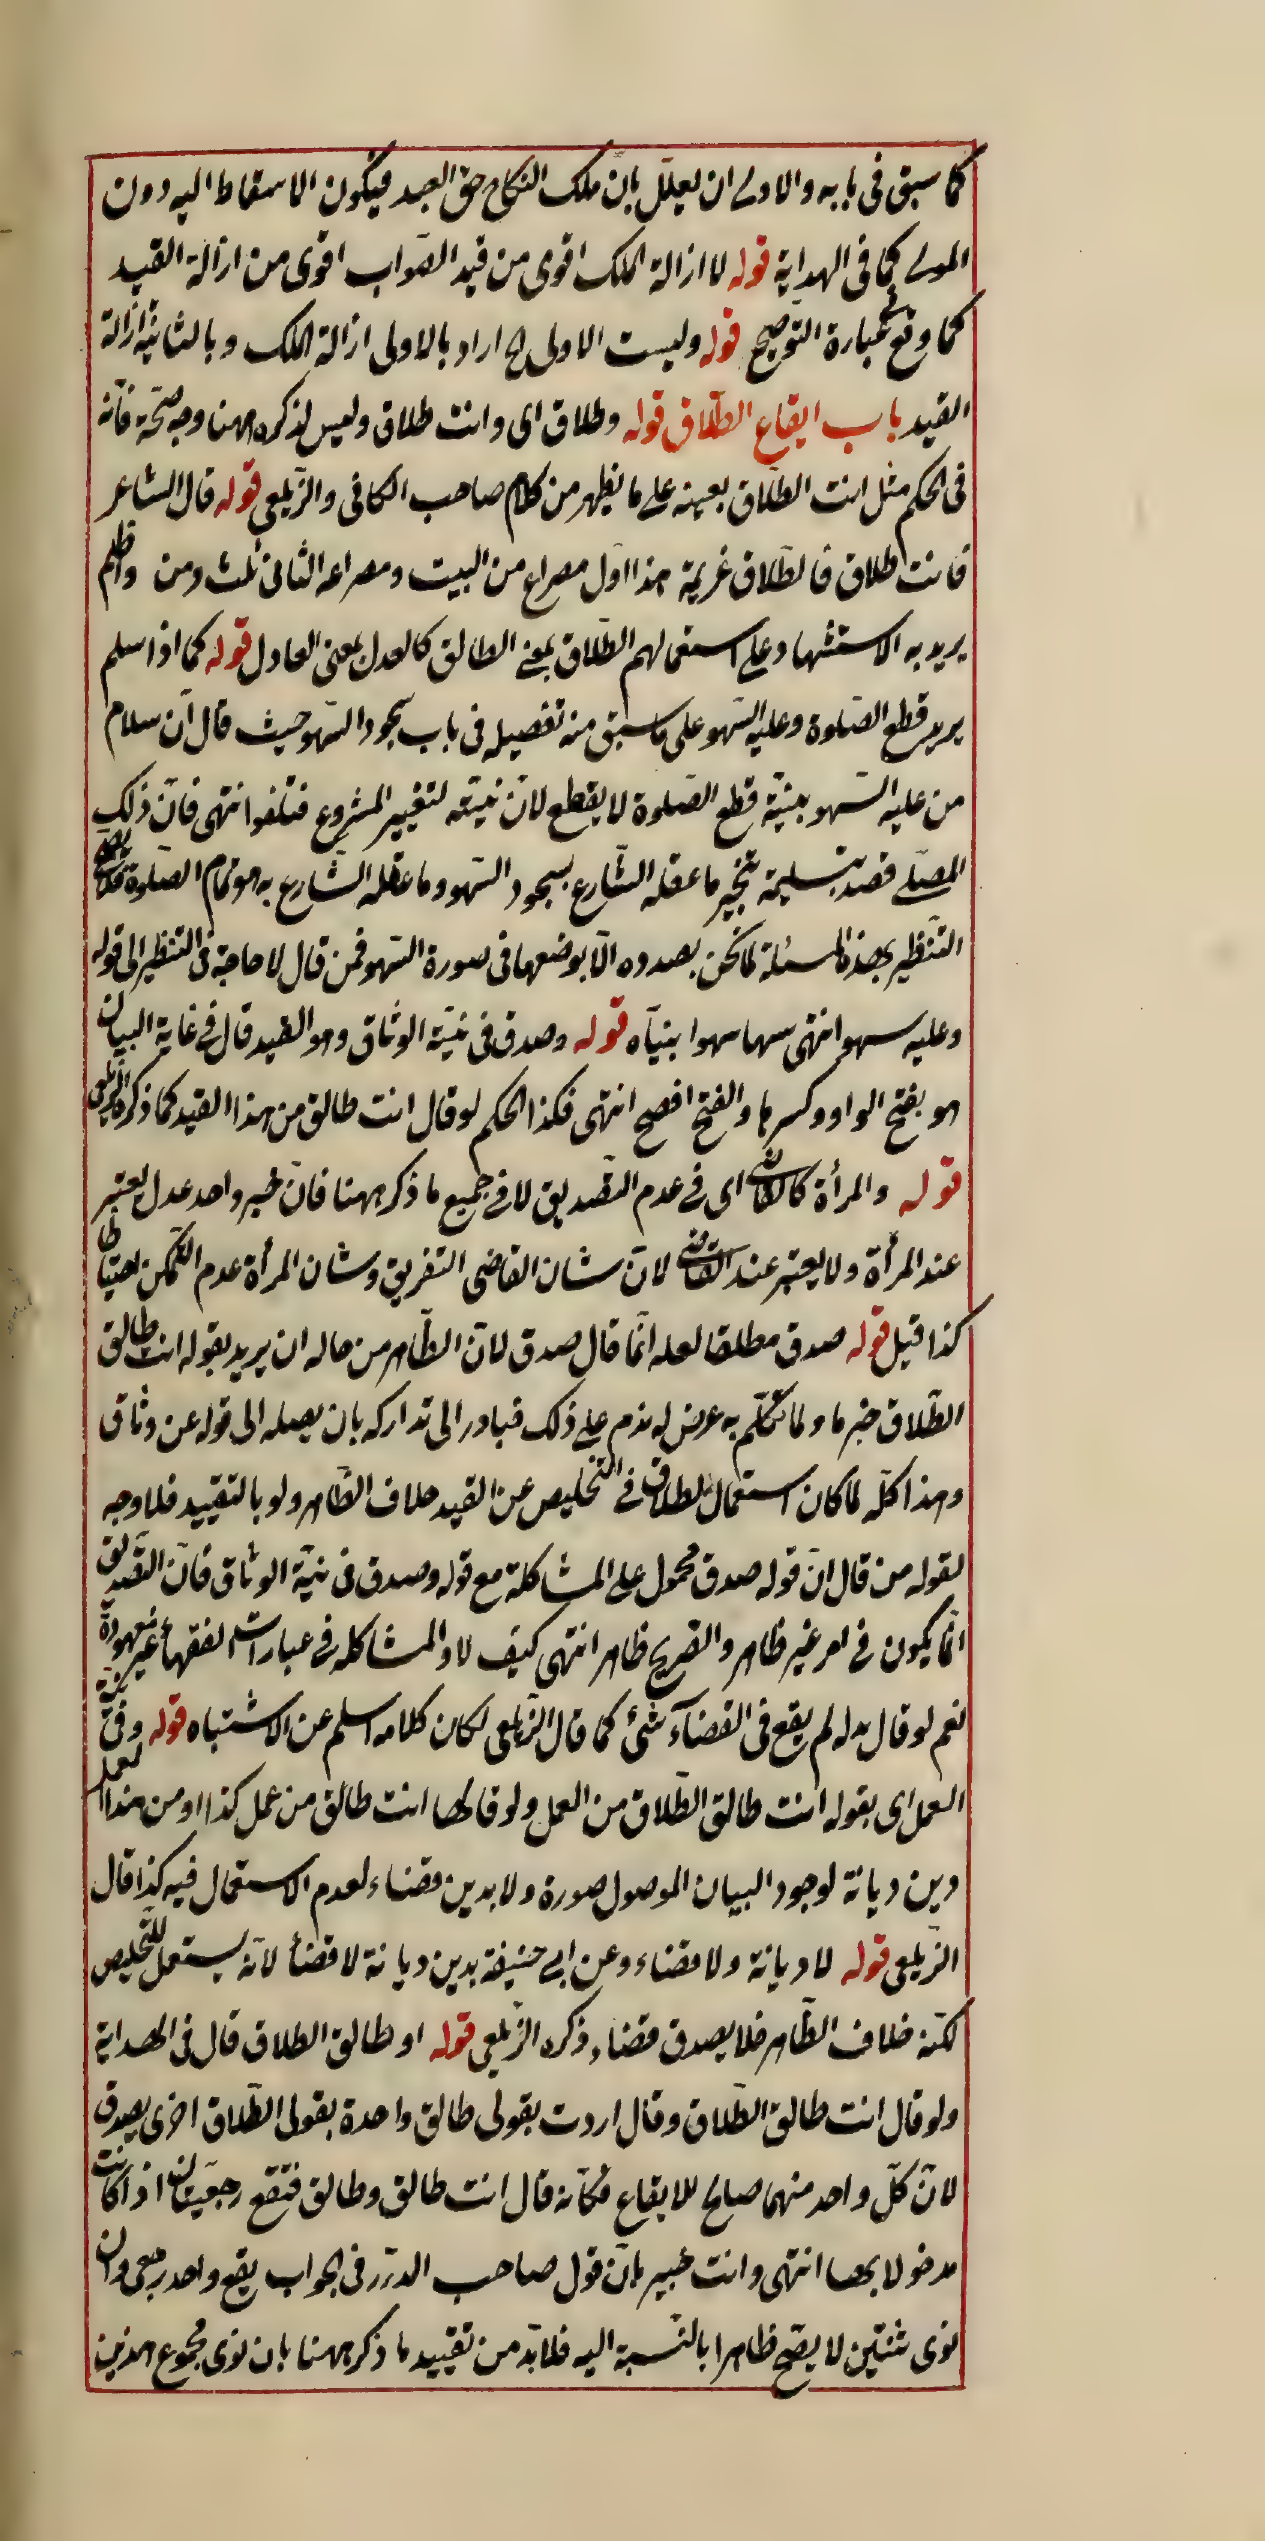 كما سبق فى بابه والاولى ان يعلّل بانّ ملك النكاح حق العبد فيكون الاسقاط اليه دون
المولى كما فى الهداية قوله لا ازالة الملك اقوى من قيد الصّواب اقوى من ازالة القيد
كما وقع فى عبارة التّوضيح قوله وليست الاولى الخ اراد بالاولى ازالة الملك وبالثانية ازالة
القيد باب ايقاع الطّلاق قوله وطلاق اى وانت طلاق وليس لذكره ههنا وجه صحّة فانّه
فى الحكم مثل انت الطّلاق بعينه على ما يظهر من كلام صاحب الكافى والزّيلعى قوله قال الشاعر
فانت طلاق فالطّلاق عزيمة هذا اوّل مصراع من البيت ومصراعه الثانى ثلث ومن واظلم
يريد به الاستشهاد على استعمالهم الطّلاق بمعنى الطالق كالعدل بمعنى العادل قوله كما اذا سلم
يريد قطع الصّلوة وعليه السّهو على ما سبق منه تفصيله فى باب سجود السّهو حيث قال انّ سلام
من عليه السّهو بنيّة قطع الصّلوة لا يقطع لانّ نيّته لتغيير المشروع فتلغوا انتهى فانّ ذلك
المصلّى قصد بتسليمة تنجيز ما عقله الشّارع بسجود السّهو وما عقله الشّارع به هو تمام الصّلوة فلا يصح
التّنظير بهذه المسئلة لما نحن بصدده الّا بوضعها فى صورة السّهو فمن قال لا حاجة فى التنظير الى قوله
وعليه سهو انتهى سها سهوا بيّنا قوله وصدق فى نيّة الوثاق وهو القيد قال فى غاية البيان
هو بفتح الواو وكسرها والفتح افصح انتهى فكذا الحكم لو قال انت طالق من هذا القيد كما ذكره الزّيلعى
قوله والمرأة كالقاضى اى فى عدم التّصديق لا فى جميع ما ذكر ههنا فانّ خبر واحد عدل يعتبر
عند المرأة ولا يعتبر عند القاضى لانّ شان القاضى التفريق وشان المرأة عدم التّمكّن احتياطا
كذا قيل قوله صدق مطلقا لعله انّما قال صدق لانّ الظّاهر من حاله ان يريد بقوله انت طالق
الطّلاق جزما ولما تكلّم به عرض له ندم على ذلك فبادر الى تداركه بان يصله الى قوله عن وثاق
وهذا كلّه لما كان استعمال الطلاق فى التخليص عن القيد خلاف الظّاهر ولو بالتقييد فلا وجه
لقوله من قال انّ قوله صدق محمول على المشاكلة مع قوله وصدق فى نيّة الوثاق فانّ التّصديق
انّما يكون فى امر غير ظاهر والصّريح ظاهر انتهى كيف لا والمشاكله فى عبارات الفقهاء غير معهودة
نعم لو قال بدله لم يقع فى القضآء شئ كما قال الزّيلعى لكان كلامه اسلم عن الاشتباه قوله وفى نيّة
العمل اى بقوله انت طالق الطّلاق من العمل ولو قال لها انت طالق من عمل كذا او من هذا العمل
دين ديانة لوجود البيان الموصول صورة ولا يدين قضاء لعدم الاستعمال فيه كذا قال
الزّيلعى قوله لا ديانة ولا قضاء وعن ابى حنيفة يدين ديانة لا قضأ لانّه يستعمل للتّخليص
لكنّه خلاف الظّاهر فلا يصدق قضاء ذكره الزّيلعى قوله او طالق الطلاق قال فى الهداية
ولو قال انت طالق الطّلاق وقال اردت بقولى طالق واحدة بقولى الطّلاق اخرى يصدق
لانّ كلّ واحد منهما صالح للايقاع فكانّه قال انت طالق وطالق فتقع رجعيتان اذا كانت
مدخولا بها انتهى وانت خبير بانّ قول صاحب الدّرر فى الجواب يقع واحد رجعى وان
نوى ثنتين لا يصّح ظاهرا بالنّسبة اليه فلا بدّ من تقييد ما ذكر ههنا بان نوى مجموع هذين